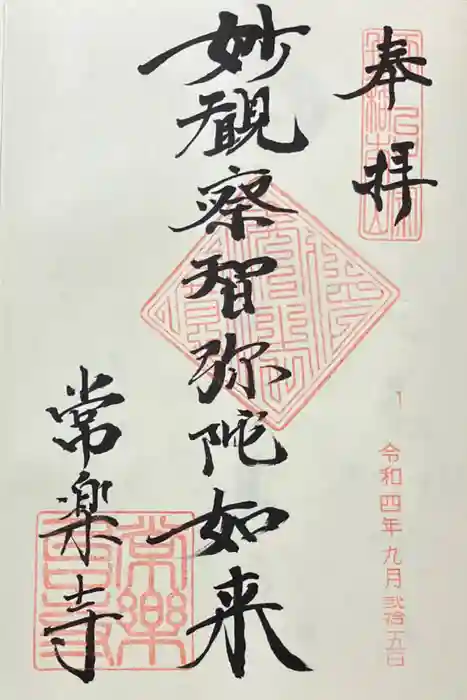 奉拝
令和四年九月弐拾五日
妙観察智弥陀如来
常楽寺
常樂寺